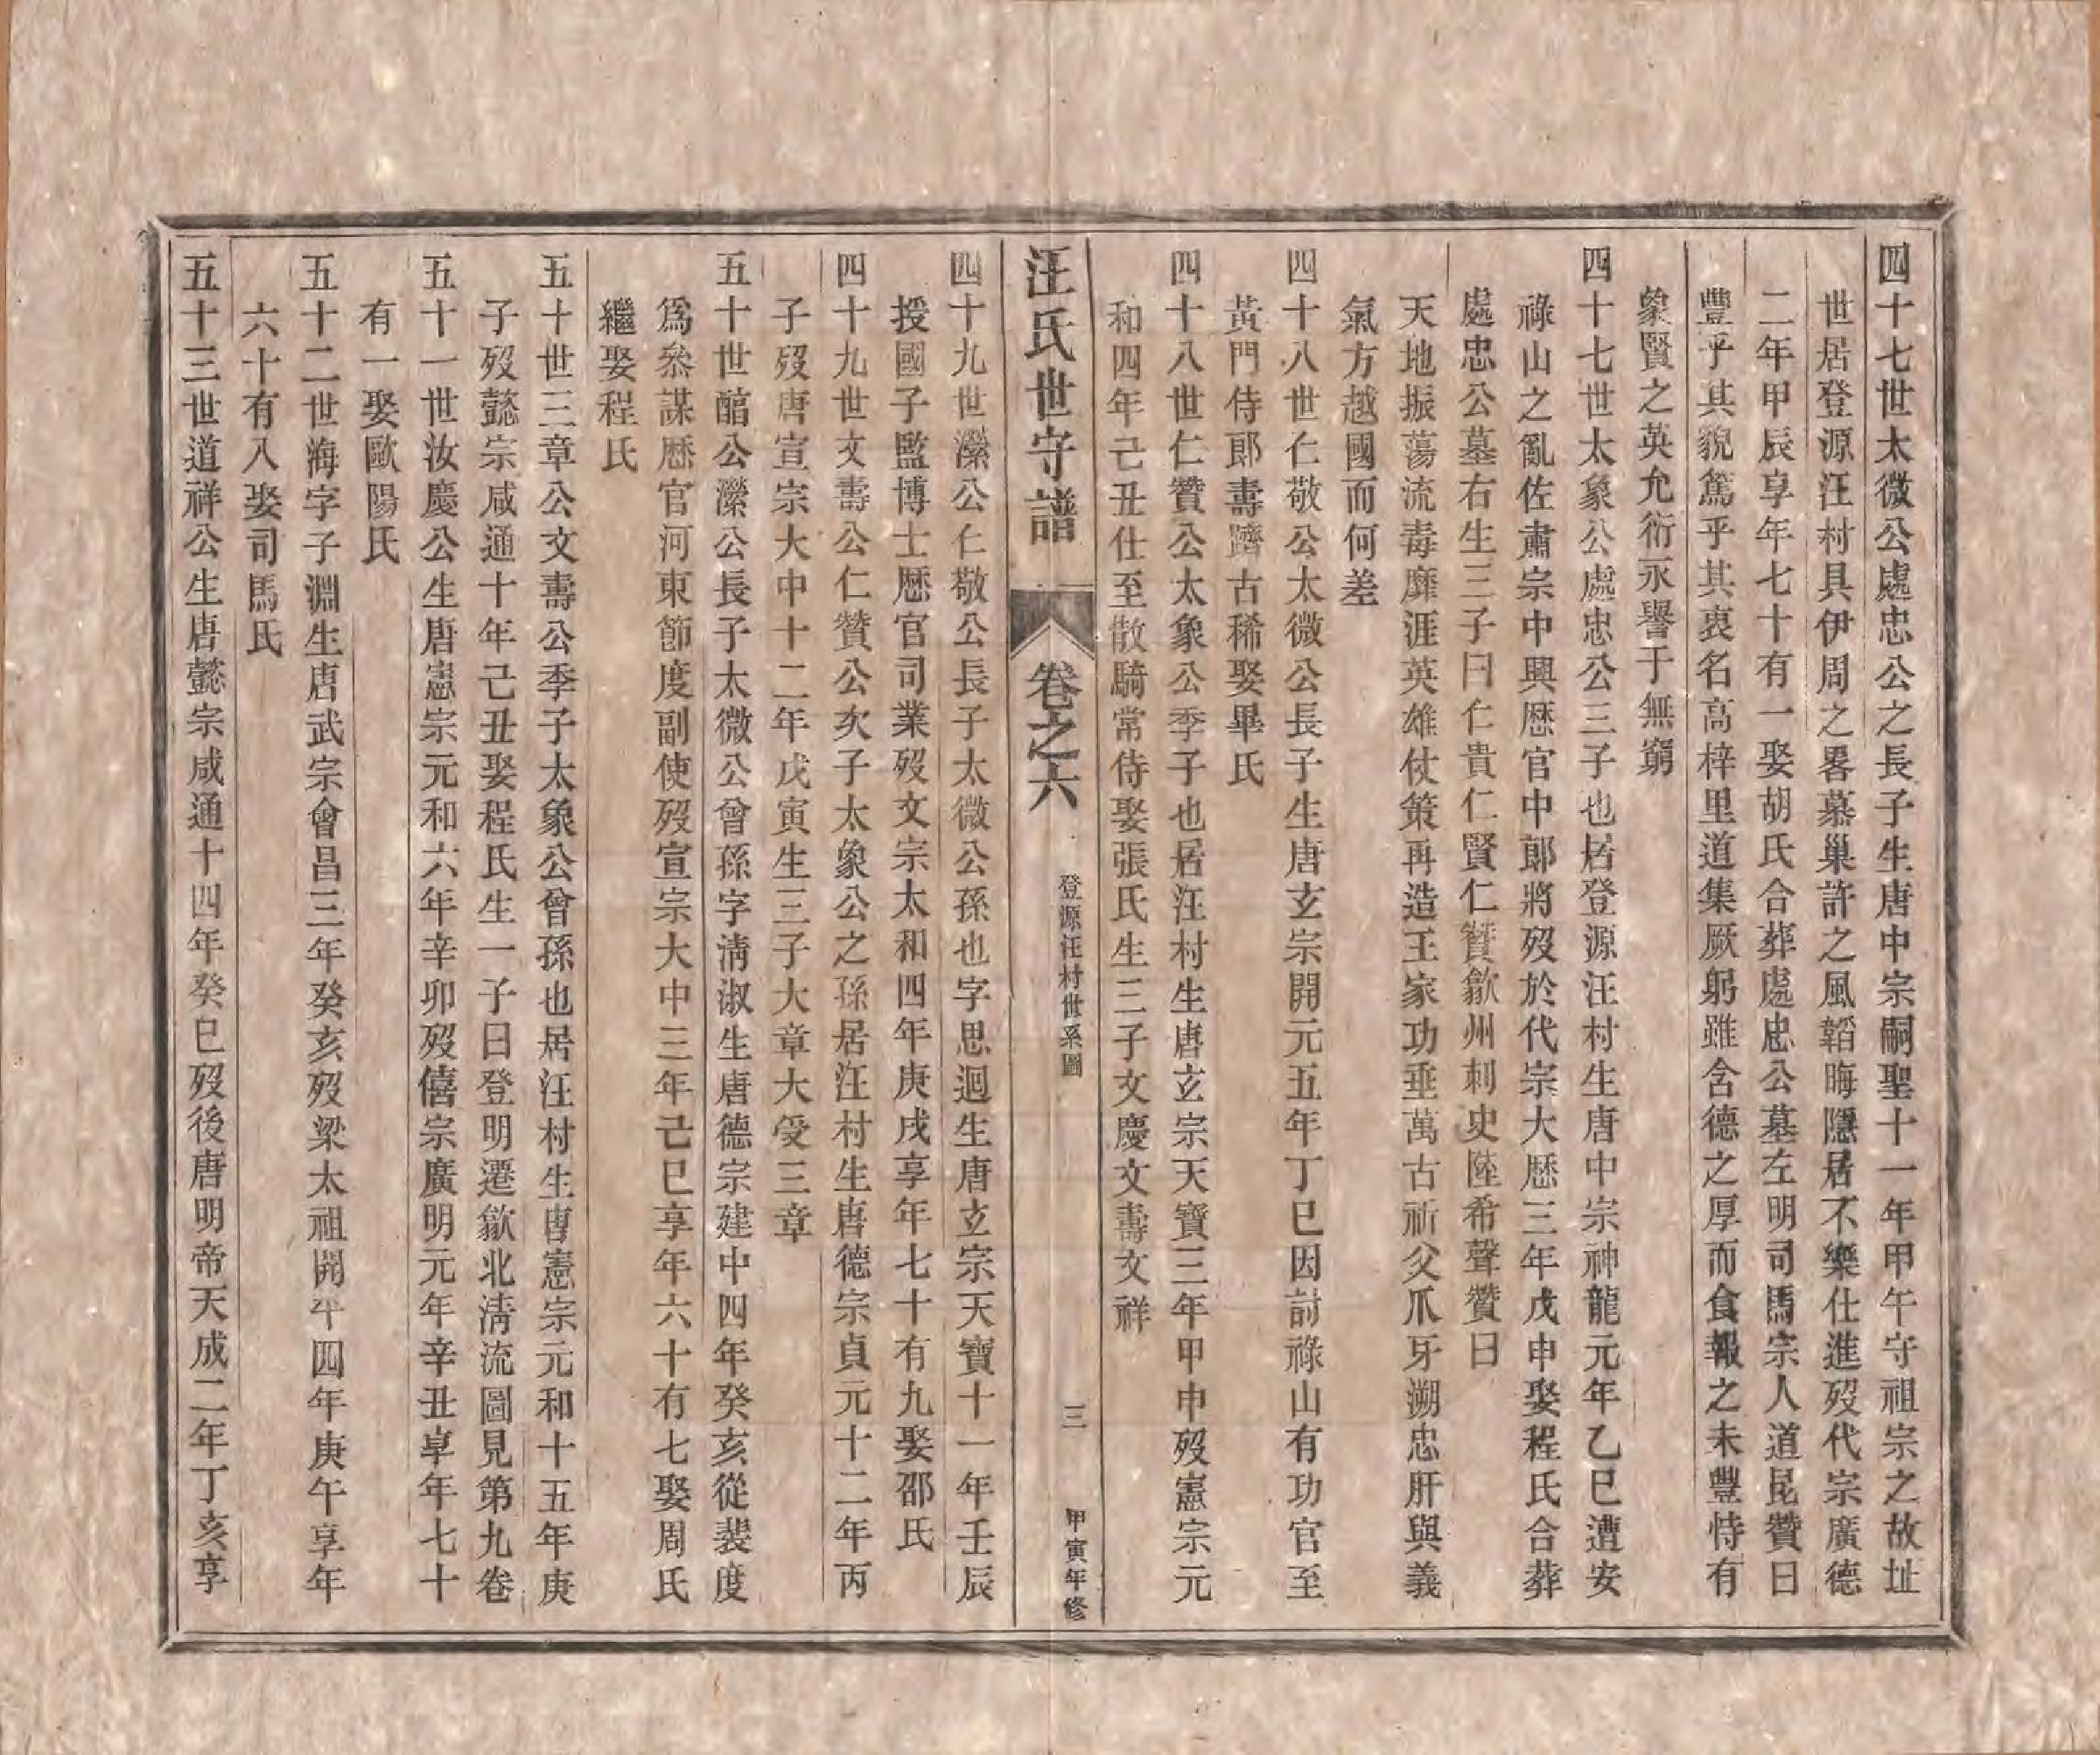 四十七世太微公處忠公之長子生唐中宗嗣聖十一年甲午守祖宗之故址
世居登源汪村具伊周之畧慕巢許之風韜晦隱居不樂仕進歿代宗廣德
二年甲辰享年七十有一娶胡氏合葬處忠公墓左明司馬宗人道昆贊曰
豐乎其貌篤乎其衷名高梓里道集厥躬雖含德之厚而食報之未豐恃有
象賢之英允衍永譽于無窮
四十七世太象公處忠公三子也居登源汪村生唐中宗神龍元年乙巳遭安
祿山之亂佐肅宗中興歴官中郎將歿於代宗大歴三年戊申娶程氏合葬
處忠公墓右生三子曰仁貴仁賢仁贊歙州刺史陸希聲贊曰
天地振蕩流毒靡涯英雄仗策再造王家功垂萬古祈父爪牙溯忠肝與義
氣方越國而何差
四十八世仁敬公太微公長子生唐玄宗開元五年丁巳因討祿山有功官至
黃門侍郎壽躋古稀娶畢氏
四十八世仁贊公太象公季子也居汪村生唐玄宗天寶三年甲申歿憲宗元
和四年己丑仕至散騎常侍娶張氏生三子文慶文壽文祥
汪氏世守譜
卷之六
登源汪村世系圖
三
甲寅年修
四十九世濴公仁敬公長子太微公孫也字思迴生唐玄宗天寶十一年壬辰
授國子監博士歴官司業歿文宗太和四年庚戌享年七十有九娶邵氏
四十九世文壽公仁贊公次子太象公之孫居汪村生唐德宗貞元十二年丙
子歿唐宣宗大中十二年戊寅生三子大章大受三章
五十世䤈公濴公長子太微公曾孫字淸淑生唐德宗建中四年癸亥從裴度
爲叅謀歴官河東節度副使歿宣宗大中三年己巳享年六十有七娶周氏
繼娶程氏
五十世三章公文壽公季子太象公曾孫也居汪村生唐憲宗元和十五年庚
子歿懿宗咸通十年己丑娶程氏生一子曰登明遷歙北淸流圖見第九卷
五十一世汝慶公生唐憲宗元和六年辛卯歿僖宗廣明元年辛丑享年七十
有一娶歐陽氏
五十二世海字子淵生唐武宗會昌三年癸亥歿梁太祖開平四年庚午享年
六十有八娶司馬氏
五十三世道祥公生唐懿宗咸通十四年癸巳歿後唐明帝天成二年丁亥享